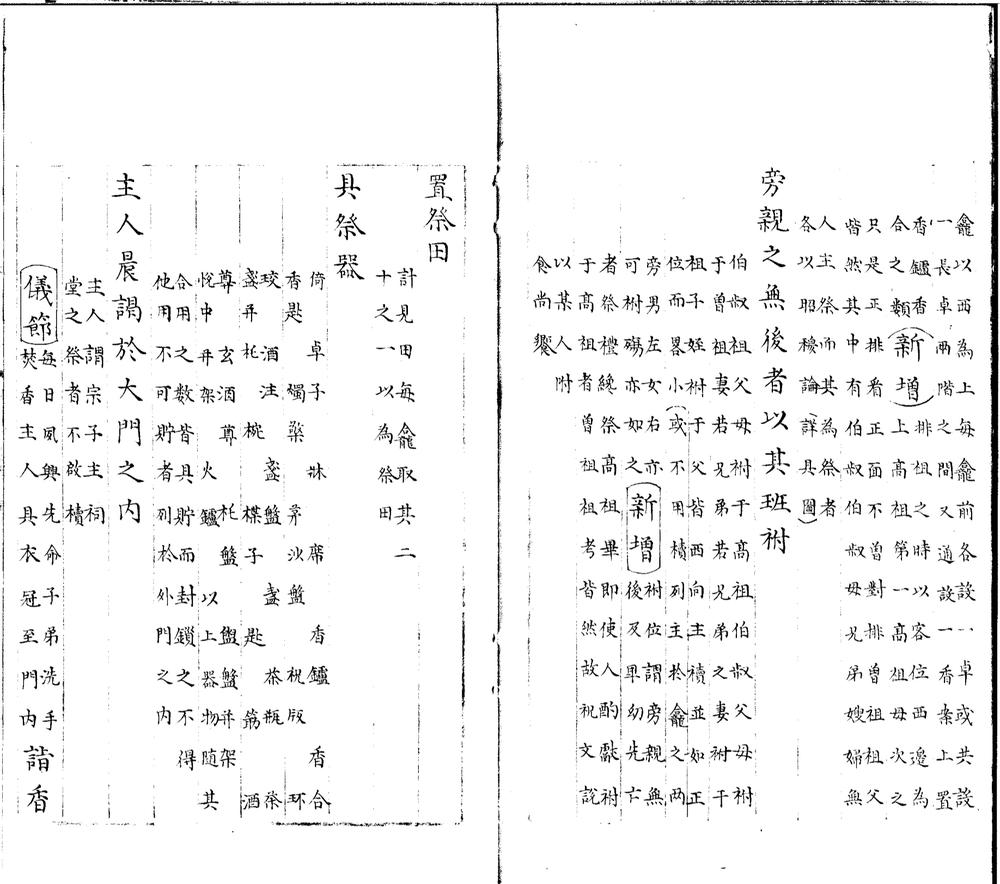 龕以西為上每龕前各設一卓或共設
一長卓兩階之間又通設一香案上置
香鑪香
合之類
新增
排祖之時以客位西邊為
上高祖第一高祖母次之
只是正排看正面不曾對排曾祖父
皆然其中有伯叔伯叔母兄弟嫂婦無
人主祭而其為祭者
各以昭穆論詳具圖
旁親之無後者以其班祔
伯叔祖父母祔于高祖伯叔父母祔
于曾祖妻若兄弟若兄弟之妻祔于
祖子姪祔于父皆西向主櫝並如正
位而畧小或不用櫝列主於龕之兩
旁男左女右亦
可祔殤亦如之
新增
祔位謂旁親無
後及卑幼先亡
者祭禮纔祭高祖畢即使人酌獻祔
于高祖者曾祖考皆然故祝文說
以某人附
食尚饗
置祭田
計見田每龕取其二
十之一以為祭田
具祭器
倚卓子牀席香鑪香合
香匙燭檠茅沙盤祝版环
珓酒注盞盤盞茶瓶祭
盞并托椀楪子匙筯酒
尊玄酒尊托盤盥盤并架
帨巾并架火鑪以上器物随其
合用之數皆具貯而封鎖之不得
他用不可貯者列於外門之内
主人晨謁於大門之内
主人謂宗子主祠
堂之祭者不啟櫝
儀節
每日夙興先命子弟洗手
焚香主人具衣冠至門内
詣香